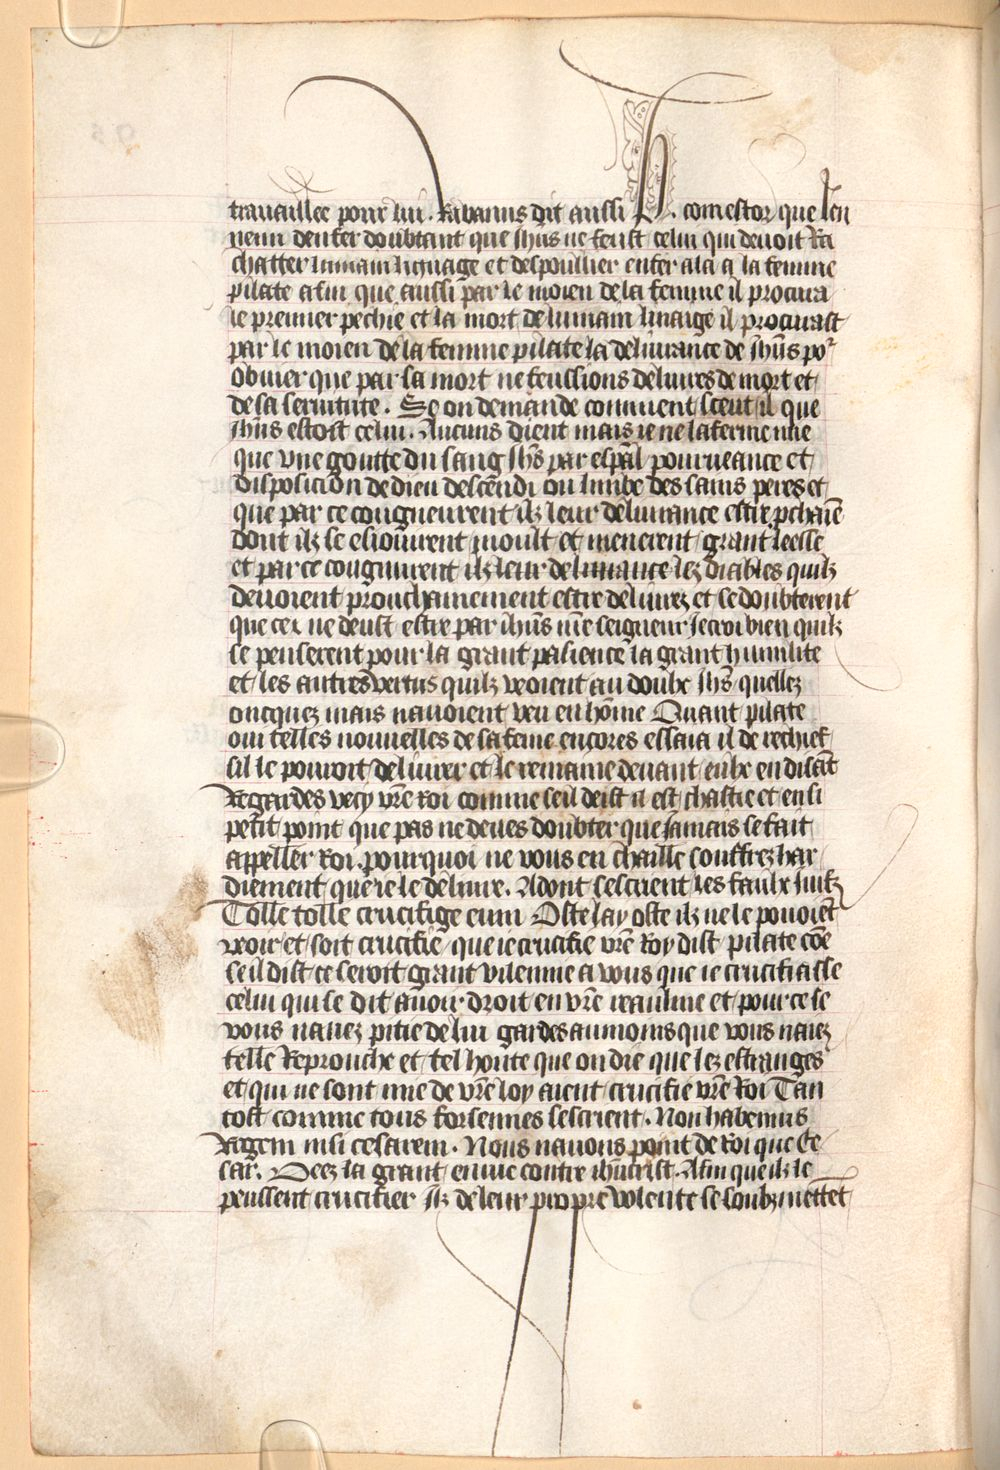 travaillee pour lui. Rabanus dit aussi P. comestor que len
nemi denfer doubtant que ihus ne feust celui qui devoit Ra
chatter lumain lignage et despoullier enfer ala a la femme
pilate afin que aussi par le moien de la femme il procura
le premier pechie et la mort de lumain linaige il procurast
par le moien de la femme pilate la delivrance de ihus por
obvier que par sa mort ne feussions delivres de mort et
de sa servitute. Se on demande comment sceut il que
ihus estoit celui. Aucuns dient mais ie ne laferme mie
que une goutte du sang ihs par espal pourveance et
disposicion de dieu descendi ou limbe des sains peres et
que par ce congneurent ilz leur delivrance estre pchaie
dont ilz se esiouirent moult et menerent grant leesse
et par ce congnurent ilz leur delivrance lez diables quilz
devoient prouchainement estre delivrez et se doubterent
que cei ne deust estre par ihus nre seigneur Ie croi bien quilz
se penserent pour la grant pasience la grant humilite
et les autres vertus quilz veoient au doulx ihs quellez
oncquez mais navoient veu en home Quant pilate
oui telles nouvelles de sa feme encores essaia il de rechief
sil le pouroit delivrer et le remaine devant eulx en disat
Regardes vecy vre Roi comme seil deist il est chastie et ensi
petit point que pas ne deves doubter que iamais se fait
appeller Roi. pourquoi ne vous en chaille souffrez har
diement que ie le delivre. Adont sescrient les faulx iuifz
Tolle tolle crucifige eum Oste lay oste ilz ne le povoiet
veoir et soit crucifie que ie crucifie vre Roy dist pilate coe
seil dist ce seroit grant vilennie a vous que ie crucifiasse
celui qui se dit avoir droit en vre reaulme et pour ce se
vous navez pitie de lui gardes aumoins que vous naiez
telle Reprouche et tel honte que on die que lez estranges
et qui ne sont mie de vre loy aient crucifie vre Roi Tan
tost comme tous forsennes sescrient. Non habemus
Regem nisi cesarem. Nous navons point de Roi que Ce
sar. Veez la grant envie contre ihucrist. Afin que ilz le
peussent crucifier ilz de leur propre volente se soubzmettet